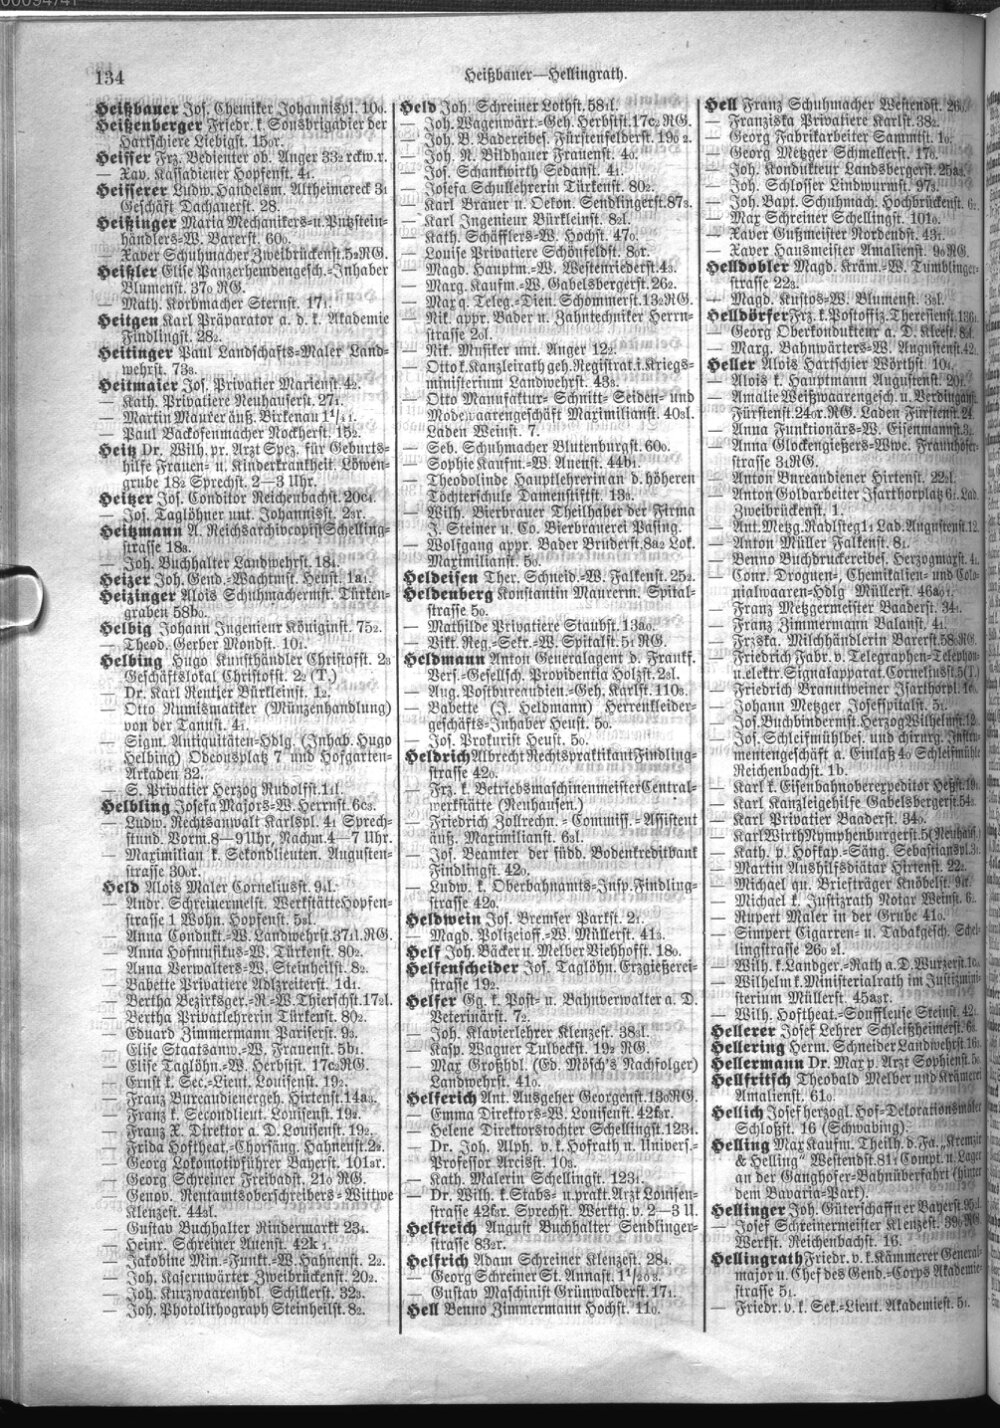 134
Heißbauer—Hellingrath.
Heißbauer Jos. Chemiker Johannispl. 10o.
Heißenberger Friedr. k. Sousbrigadier der
Hartschiere Liebigst. 15or.
Heisser Frz. Bedienter ob. Anger 332 rckw.r.
— Xav. Kassadiener Hopfenst. 41.
Heisserer Ludw. Handelsm. Altheimereck 31
Geschäft Dachauerst. 28.
Heißinger Maria Mechanikers-u. Putzstein-
händlers-W. Barerst. 60o.
— Xaver Schuhmacher Zweibrückenst. 52RG.
Heißler Elise Panzerhemdengesch.-Inhaber
Blumenst. 37o RG.
— Math. Korbmacher Sternst. 171.
Heitgen Karl Präparator a. d. k. Akademie
Findlingst. 282.
Heitinger Paul Landschafts-Maler Land-
wehrst. 733.
Heitmaier Jos. Privatier Marienst. 42.
— Kath. Privatiere Neuhauserst. 271.
— Martin Maurer äuß. Birkenau 1¹/41.
— Paul Backofenmacher Rockherst. 152.
Heitz Dr. Wilh. pr. Arzt Spez. für Geburts-
hilfe Frauen- u. Kinderkrankheit. Löwen-
grube 182 Sprechst. 2—3 Uhr.
Heitzer Jos. Conditor Reichenbachst. 20c1.
— Jos. Taglöhner unt. Johannisst. 22r.
Heitzmann A. Reichsarchivcopist Schelling-
strasse 183.
— Joh. Buchhalter Landwehrst. 184.
Heizer Joh. Gend.-Wachtmst. Heust. 1a1.
Heizinger Alois Schuhmachermst. Türken-
graben 58bo.
Helbig Johann Ingenieur Königinst. 752.
— Theod. Gerber Mondst. 101.
Helbing Hugo Kunsthändler Christofst. 23
Geschäftslokal Christofst. 22 (T.)
— Dr. Karl Rentier Bürkleinst. 12.
— Otto Numismatiker (Münzenhandlung)
von der Tannst. 41.
— Sigm. Antiquitäten-Hdlg. (Inhab. Hugo
Helbing) Odeonsplatz 7 und Hofgarten-
Arkaden 32.
— S. Privatier Herzog Rudolfst. 11l.
Helbling Josefa Majors-W. Herrnst. 6c3.
— Ludw. Rechtsanwalt Karlspl. 41 Sprech-
stund. Vorm. 8—9 Uhr, Nachm. 4—7 Uhr.
— Maximilian k. Sekondlieuten. Augusten-
strasse 30or.
Held Alois Maler Corneliusst. 94l.
— Andr. Schreinermeist. Werkstätte Hopfen-
strasse 1 Wohn. Hopfenst. 53l.
— Anna Condukt.-W. Landwehrst. 371l.RG.
— Anna Hofmusikus-W. Türkenst. 802.
— Anna Verwalters-W. Steinheilst. 82.
— Babette Privatiere Adlzreiterst. 1d1.
— Bertha Bezirksger.-R.-W. Thierschst. 172l.
— Bertha Privatlehrerin Türkenst. 802.
— Eduard Zimmermann Pariserst. 93.
— Elise Staatsanw.-W. Frauenst. 5b1.
— Elise Taglöhn.-W. Herbstst. 17c2RG.
— Ernst k. Sec.-Lieut. Louisenst. 192.
— Franz Bureaudienergeh. Hirtenst. 14a3.
— Franz k. Secondlieut. Louisenst. 192.
— Franz X. Direktor a. D. Louisenst. 192.
— Frida Hoftheat.-Chorsäng. Hahnenst. 22.
— Georg Lokomotivführer Bayerst. 1013r.
— Georg Schreiner Freibadst. 21o RG.
— Genov. Rentamtsoberschreibers-Wittwe
Klenzest. 443l.
— Gustav Buchhalter Rindermarkt 234.
— Heinr. Schreiner Auenst. 42k1.
— Jakobine Min.-Funkt.-W. Hahnenst. 22.
— Joh. Kasernwärter Zweibrückenst. 202.
— Joh. Kurzwaarenhdl. Schillerst. 323.
— Joh. Photolithograph Steinheilst. 82.
Held Joh. Schreiner Lothst. 581l.
— Joh. Wagenwärt.-Geh. Herbstst. 17c2 RG.
— Joh. B. Badereibes. Fürstenfelderst. 19o 2.
— Joh. N. Bildhauer Frauenst. 4o.
— Jos. Schankwirth Sedanst. 41.
— Josefa Schullehrerin Türkenst. 802.
— Karl Brauer u. Oekon. Sendlingerst. 873.
— Karl Ingenieur Bürkleinst. 82l.
— Kath. Schäfflers-W. Hochst. 47o.
— Louise Privatiere Schönfeldst. 8or.
— Magd. Hauptm.-W. Westenriederst. 43.
— Marg. Kaufm.-W. Gabelsbergerst. 262.
— Max g. Teleg.-Dien. Schommerst. 132RG.
— Nik. appr. Bader u. Zahntechniker Herrn-
strasse 2ol.
— Nik. Musiker unt. Anger 122.
— Otto k. Kanzleirath geh. Registrat. i. Kriegs-
ministerium Landwehrst. 433.
— Otto Manufaktur- Schnitt- Seiden- und
Modewaarengeschäft Maximilianst. 403l.
Laden Weinst. 7.
— Seb. Schuhmacher Blutenburgst. 60o.
— Sophie Kaufm.-W. Auenst. 44b1.
— Theodolinde Hauptlehrerin an d. höheren
Töchterschule Damenstiftst. 133.
— Wilh. Bierbrauer Theilhaber der Firma
J. Steiner u. Co. Bierbrauerei Pasing.
— Wolfgang appr. Bader Bruderst. 8a2 Lok.
Maximilianst. 5o.
Heldeisen Ther. Schneid.-W. Falkenst. 252.
Heldenberg Konstantin Maurerm. Spital-
strasse 5o.
— Mathilde Privatiere Staubst. 13ao.
— Vikt. Reg.-Sekr.-W. Spitalst. 51 RG.
Heldmann Anton Generalagent d. Frankf.
Vers.-Gesellsch. Providentia Holzst. 23l.
— Aug. Postbureaudien.-Geh. Karlst. 1103.
— Babette (J. Heldmann) Herrenkleider-
geschäfts-Inhaber Heust. 5o.
— Jos. Prokurist Heust. 5o.
Heldrich Albrecht Rechtspraktikant Findling-
strasse 42o.
— Frz. k. Betriebsmaschinenmeister Central-
werkstätte (Neuhausen.)
— Friedrich Zollrechn.-Commiss.-Assistent
äuß. Maximilianst. 63l.
— Jos. Beamter der südd. Bodenkreditbank
Findlingst. 42o.
— Ludw. k. Oberbahnamts-Insp. Findling-
strasse 42o.
Heldwein Jos. Bremser Parkst. 21.
— Magd. Polizeioff.-W. Müllerst. 413.
Helf Joh. Bäcker u. Melber Viehhofst. 18o.
Helfenscheider Jos. Taglöhn. Erzgießerei-
strasse 192.
Helfer Gg. k. Post- u. Bahnverwalter a. D.
Veterinärst. 72.
— Joh. Klavierlehrer Klenzest. 383l.
— Kasp. Wagner Tulbeckst. 192 RG.
— Max Großhdl. (Ed. Mösch's Nachfolger)
Landwehrst. 41o.
Helferich Ant. Ausgeher Georgenst. 13oRG.
— Emma Direktors-W. Louisenst. 42f3r.
— Helene Direktorstochter Schellingst. 1231.
— Dr. Joh. Alph. v. k. Hofrath u. Univers.-
Professor Arcisst. 103.
— Kath. Malerin Schellingst. 1231.
— Dr. Wilh. k. Stabs- u. prakt. Arzt Louisen-
strasse 42f3r. Sprechst. Werktg. v. 2—3 U.
Helfreich August Buchhalter Sendlinger-
strasse 832r.
Helfrich Adam Schreiner Klenzest. 284.
— Georg Schreiner St. Annast. 1¹/20 3.
— Gustav Maschinist Grünwalderst. 171.
Hell Benno Zimmermann Hochst. 11o.
Hell Franz Schuhmacher Westendst.
— Franziska Privatiere Karlst. 382.
— Georg Fabrikarbeiter Sammtst. 1o.
— Georg Metzger Schmellerst. 17o.
— Joh. Kondukteur Landsbergerst. 25a3.
— Joh. Schlosser Lindwurmst. 973.
— Joh. Bapt. Schuhmach. Hochbrückenst. 61.
— Max Schreiner Schellingst. 101o.
— Xaver Gußmeister Nordendst. 431.
— Xaver Hausmeister Amalienst. 9o RG.
Helldobler Magd. Kräm.-W. Tumblinger-
strasse 223.
— Magd. Kustos-W. Blumenst. 33l.
Helldörfer Frz. k. Postoffiz. Theresienst. 1361.
— Georg Oberkondukteur a. D. Kleest. 84l.
— Marg. Bahnwärters-W. Augustenst. 42.
Heller Alois Hartschier Wörthst. 104.
— Alois k. Hauptmann Augustenst. 201.
— Amalie Weißwaarengesch. u. Verdingans.
Fürstenst. 24or. RG. Laden Fürstenst. 24.
— Anna Funktionärs-W. Eisenmannst. 34.
— Anna Glockengießers-Wwe. Fraunhofer-
strasse 31RG.
— Anton Bureaudiener Hirtenst. 222l.
— Anton Goldarbeiter Isarthorplatz 61. Lad.
Zweibrückenst. 1.
— Ant. Metzg. Radlsteg 11 Lad. Augustenst. 12.
— Anton Müller Falkenst. 81.
— Benno Buchdruckereibes. Herzogmaxst. 41.
— Conr. Droguen-, Chemikalien- und Colo-
nialwaaren-Hdlg Müllerst. 46a21.
— Franz Metzgermeister Baaderst. 341.
— Franz Zimmermann Balanst. 41.
— Frzska. Milchhändlerin Barerst. 58 RG.
— Friedrich Fabr. v. Telegraphen-Telephon-
u. elektr. Signalapparat. Corneliusst. 5 (T.)
— Friedrich Branntweiner Isarthorpl. 1o.
— Johann Metzger Josefspitalst. 51.
— Jos. Buchbindermst. Herzog Wilhelmst. 12.
— Jos. Schleifmühlbes. und chirurg. Instru-
mentengeschäft a. Einlaß 4o Schleifmühle
Reichenbachst. 1b.
— Karl k. Eisenbahnoberexpeditor Heust. 191.
— Karl Kanzleigehilfe Gabelsbergerst. 543.
— Karl Privatier Baaderst. 34o.
— Karl Wirth Nymphenburgerst. 5 (Neuhaus.)
— Kath. p. Hofkap.-Säng. Sebastianspl. 31.
— Martin Aushilfsdiätar Hirtenst. 222.
— Michael qu. Briefträger Knöbelst. 94r.
— Michael k. Justizrath Notar Weinst. 61.
— Rupert Maler in der Grube 41o.
— Simpert Cigarren- u. Tabakgesch. Schel-
lingstrasse 26o 2l.
— Wilh. k. Landger.-Rath a. D. Wurzerst. 1o.
— Wilhelm k. Ministerialrath im Justizmini-
sterium Müllerst. 45a3r.
— Wilh. Hoftheat.-Souffleuse Steinst. 42.
Hellerer Josef Lehrer Schleißheimerst. 63.
Hellering Herm. Schneider Landwehrst. 163.
Hellermann Dr. Max p. Arzt Sophienst. 5o.
Hellfritsch Theobald Melber und Krämerei
Amalienst. 61o.
Hellich Josef herzogl. Hof-Dekorationsmaler
Schloßst. 16 (Schwabing).
Helling Max Kaufm. Theilh. d. Fa. „Kremzir
& Helling“ Westendst. 811 Compt. u. Lager
an der Ganghofer-Bahnüberfahrt (hinter
dem Bavaria-Park).
Hellinger Joh. Güterschaffner Bayerst. 95
— Josef Schreinermeister Klenzest. 39o RG
Werkst. Reichenbachst. 16.
Hellingrath Friedr. v. k. Kämmerer General-
major u. Chef des Gend.-Corps Akademie-
strasse 51.
— Friedr. v. k. Sek.-Lieut. Akademiest. 51.